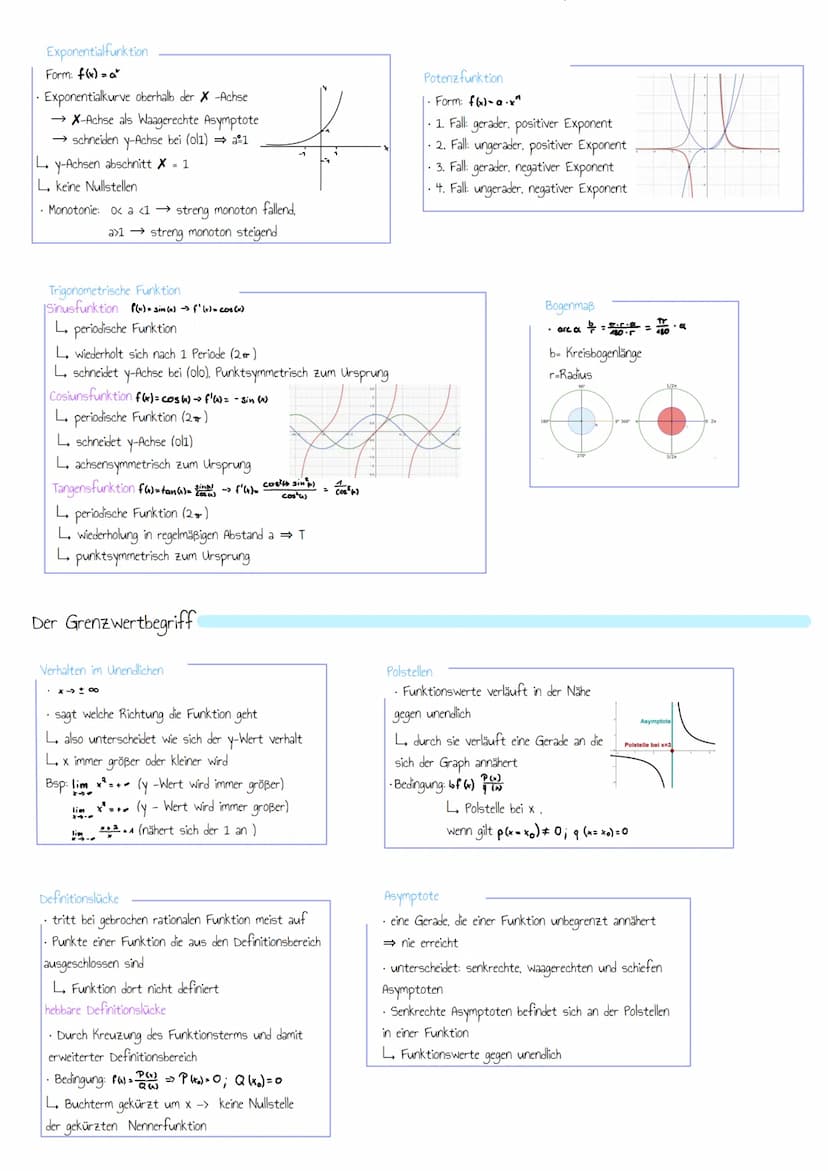 Exponentialfunktion
Form: f(x) = aˣ
· Exponentialkurve oberhalb der X -Achse
→ X-Achse als Waagerechte Asymptote
→ schneiden y-Achse bei (0|1) ⇒ a⁰=1
↳ y-Achsen abschnitt X = 1
↳ keine Nullstellen
· Monotonie: 0< a <1 → streng monoton fallend,
a>1 → streng monoton steigend
Potenzfunktion
· Form: f(x) = a · xⁿ
· 1. Fall: gerader, positiver Exponent
· 2. Fall: ungerader, positiver Exponent
· 3. Fall: gerader, negativer Exponent
· 4. Fall: ungerader, negativer Exponent
Trigonometrische Funktion
Sinusfunktion f(x) = sin(x) → f'(x) = cos(x)
↳ periodische Funktion
↳ wiederholt sich nach 1 Periode (2π)
↳ schneidet y-Achse bei (0|0), Punktsymmetrisch zum Ursprung
Cosiunsfunktion f(x) = cos(x) → f'(x) = - sin (x)
↳ periodische Funktion (2π)
↳ schneidet y-Achse (0|1)
↳ achsensymmetrisch zum Ursprung
Tangensfunktion f(x) = tan(x) = sin(x)/cos(x) → f'(x) = cos²(x)+ sin²(x)/cos²(x) = 1/cos²(x)
↳ periodische Funktion (2π)
↳ wiederholung in regelmäßigen Abstand a ⇒ T
↳ punktsymmetrisch zum Ursprung
Bogenmaß
· arc α b/r = π·r·α/180·r = π/180 · α
b= Kreisbogenlänge
r=Radius
90°
180°
0° 360°
270°
1/2π
π
0 2π
3/2π
Der Grenzwertbegriff
Verhalten im Unendlichen
· x → ± ∞
· sagt welche Richtung die Funktion geht
↳ also unterscheidet wie sich der y-Wert verhalt
↳ x immer größer oder kleiner wird
Bsp: lim x² = +∞ (y -Wert wird immer größer)
lim x² = +∞ (y - Wert wird immer großer)
lim x+2/x = 1 (nähert sich der 1 an )
Polstellen
· Funktionswerte verläuft in der Nähe
gegen unendlich
↳ durch sie verläuft eine Gerade an die
sich der Graph annähert
· Bedingung: bf (x) P(x)/q(x)
↳ Polstelle bei x ,
wenn gilt p(x = x₀) ≠ 0 ; q (x = x₀) = 0
Asymptote
Polstelle bei x=3
Definitionslücke
· tritt bei gebrochen rationalen Funktion meist auf
· Punkte einer Funktion die aus den Definitionsbereich
ausgeschlossen sind
↳ Funktion dort nicht definiert
hebbare Definitionslücke
· Durch Kreuzung des Funktionsterms und damit
erweiterter Definitionsbereich
· Bedingung: f(x) = P(x)/Q(x) ⇒ P(x₀) = 0 ; Q (x₀) = 0
↳ Buchterm gekürzt um x -> keine Nullstelle
der gekürzten Nennerfunktion
Asymptote
· eine Gerade, die einer Funktion unbegrenzt annährt
⇒ nie erreicht
· unterscheidet: senkrechte, waagerechten und schiefen
Asymptoten
· Senkrechte Asymptoten befindet sich an der Polstellen
in einer Funktion
↳ Funktionswerte gegen unendlich